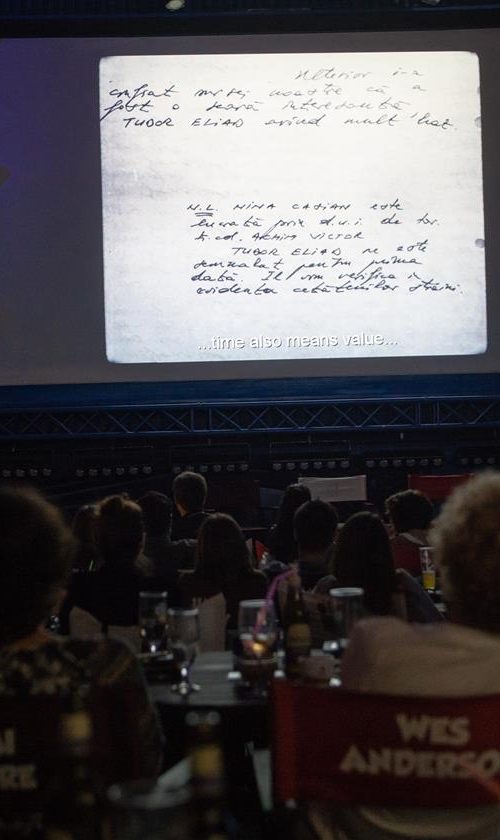 ulterior i-a
confiat sursei noastre că a
fost o seară interesantă
TUDOR ELIAD avînd mult haz.
N.L. NINA CASIAN este
lucrată prin d.u.i. de tov.
lt. col. ACHIM VICTOR
TUDOR ELIAD ne este
semnalat pentru prima
dată. Il vom verifica in
evidenta cetătenilor străini.
...time also means value...
WES
ANDERSO